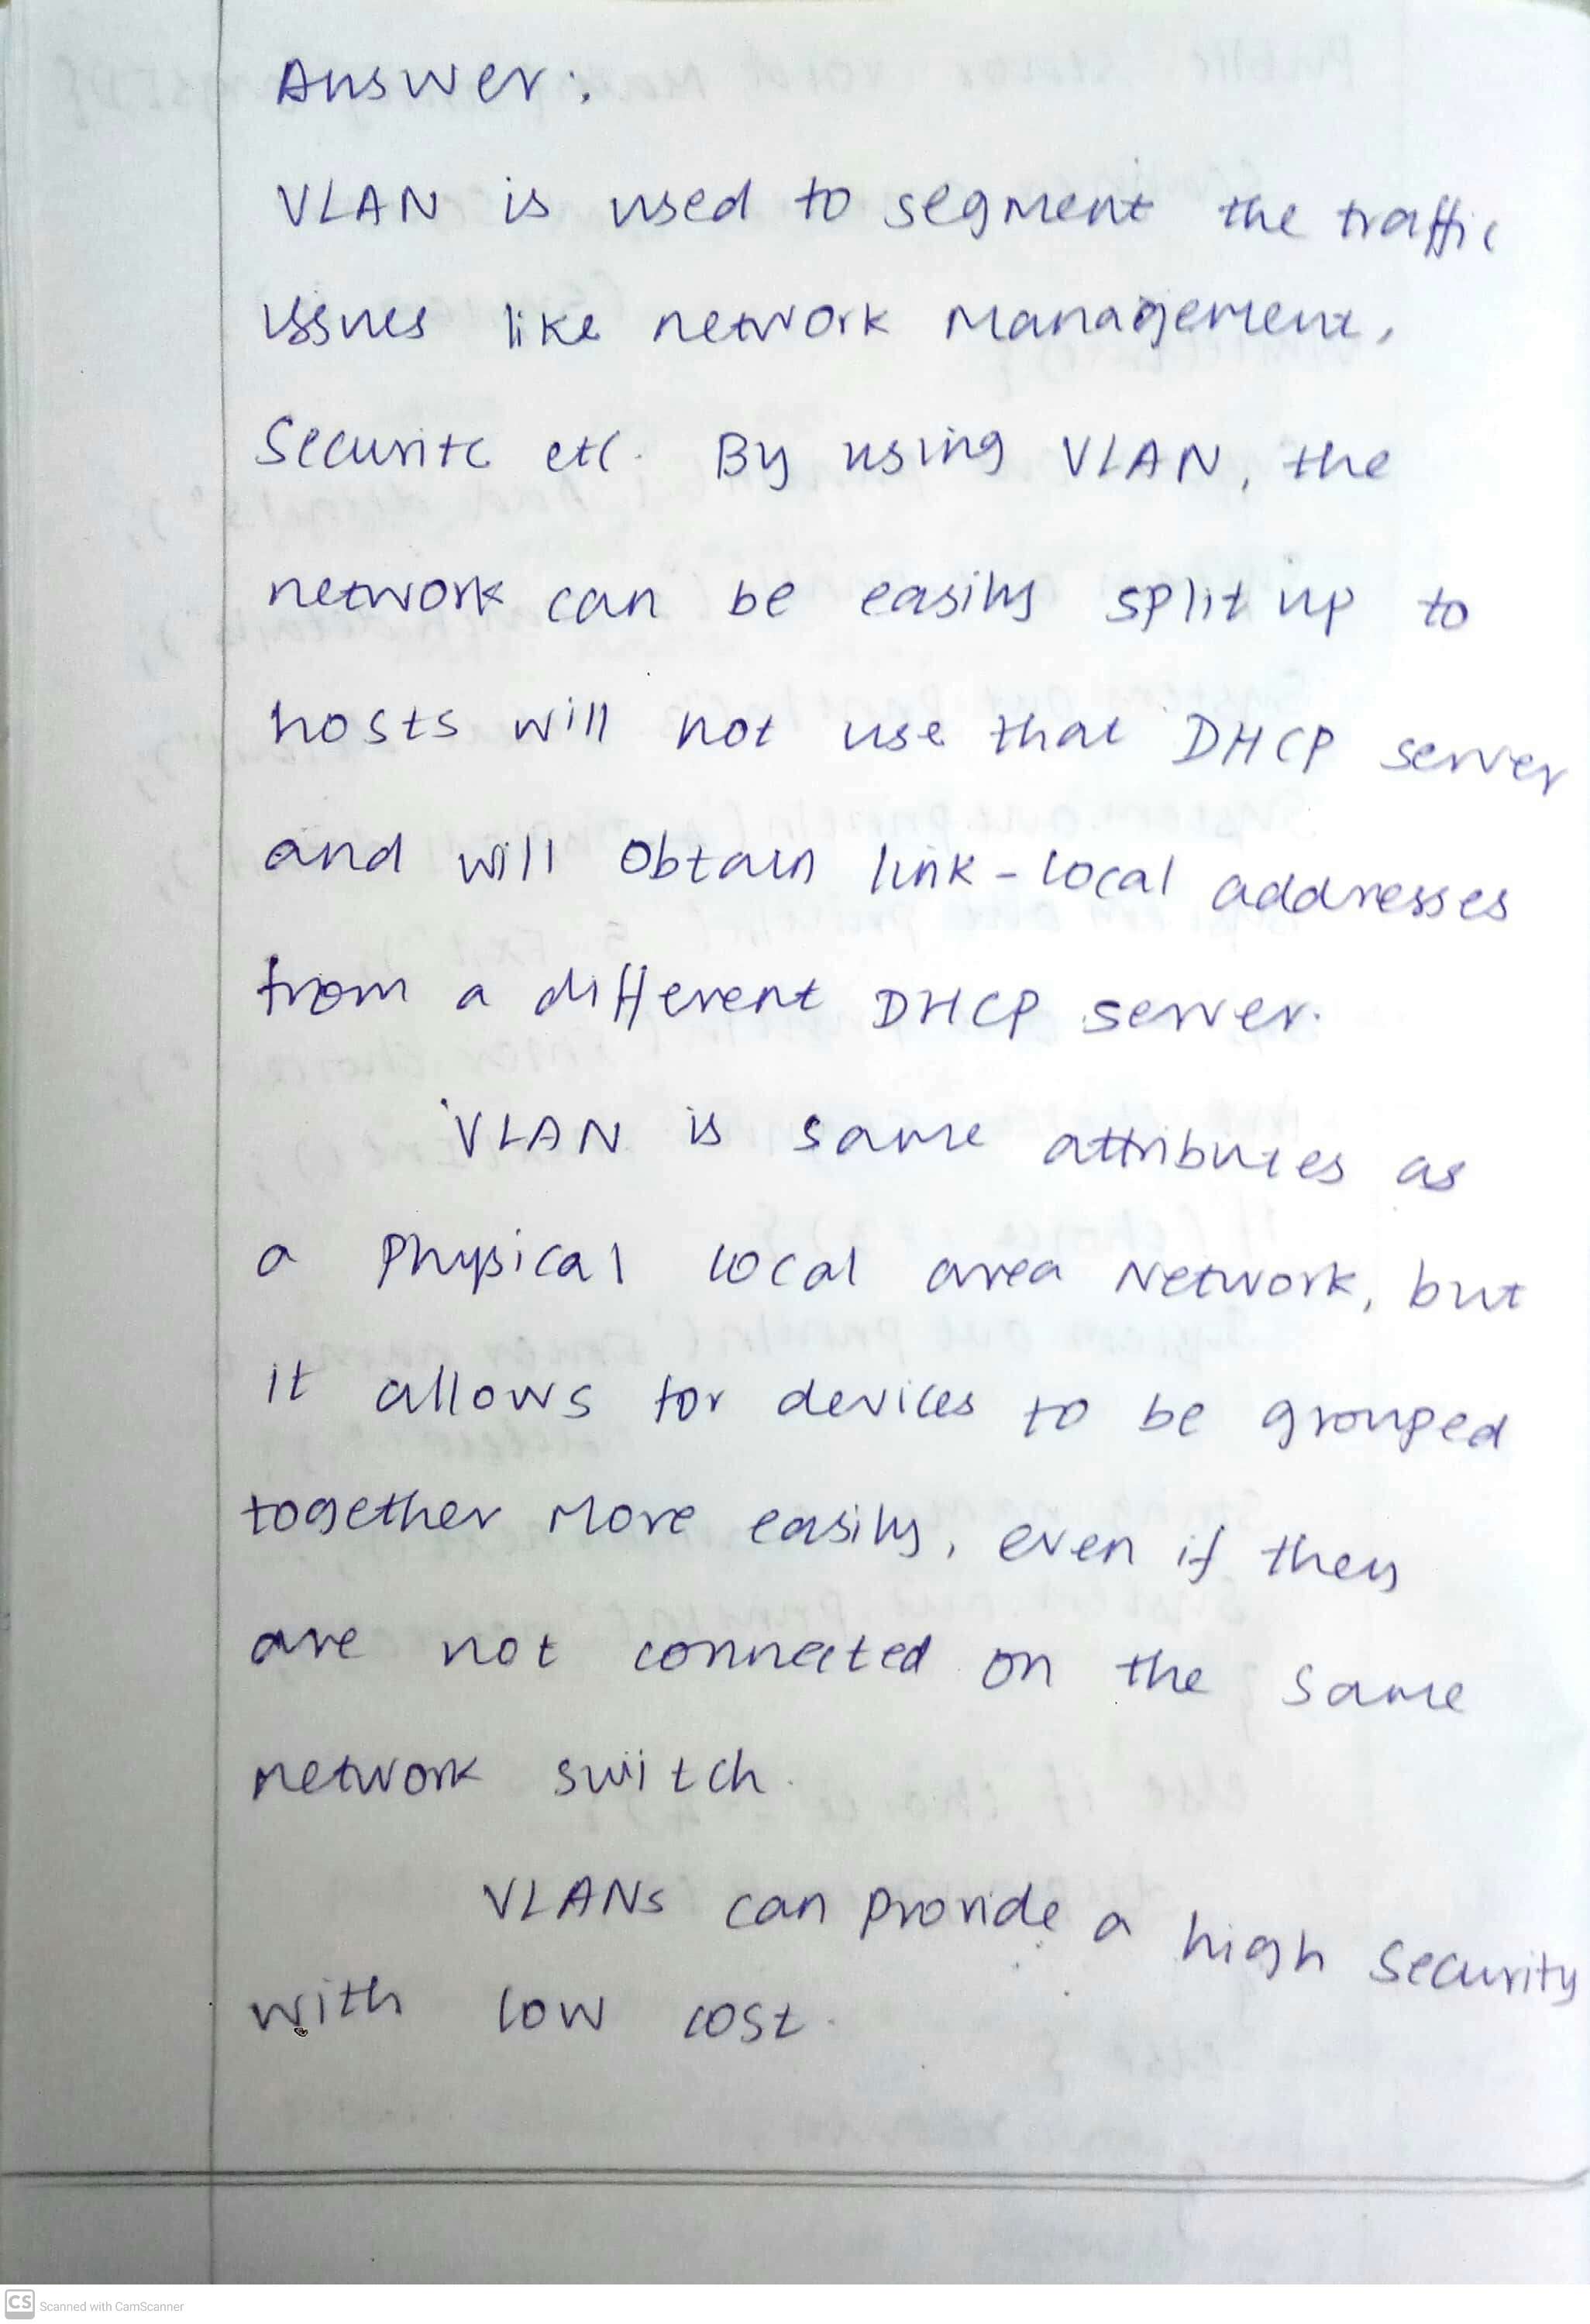 Answer:
VLAN is used to segment the traffic
issues like network Management,
Securitc etc. By using VLAN, the
network can be easily split up to
hosts will not use that DHCP server
and will obtain link-local addresses
from a different DHCP server.
VLAN is same attributes as
a physical local area Network, but
it allows for devices to be grouped
together More easily, even if they
are not connected on the same
network switch.
VLANs can provide a high security
with low cost.
CS Scanned with CamScanner